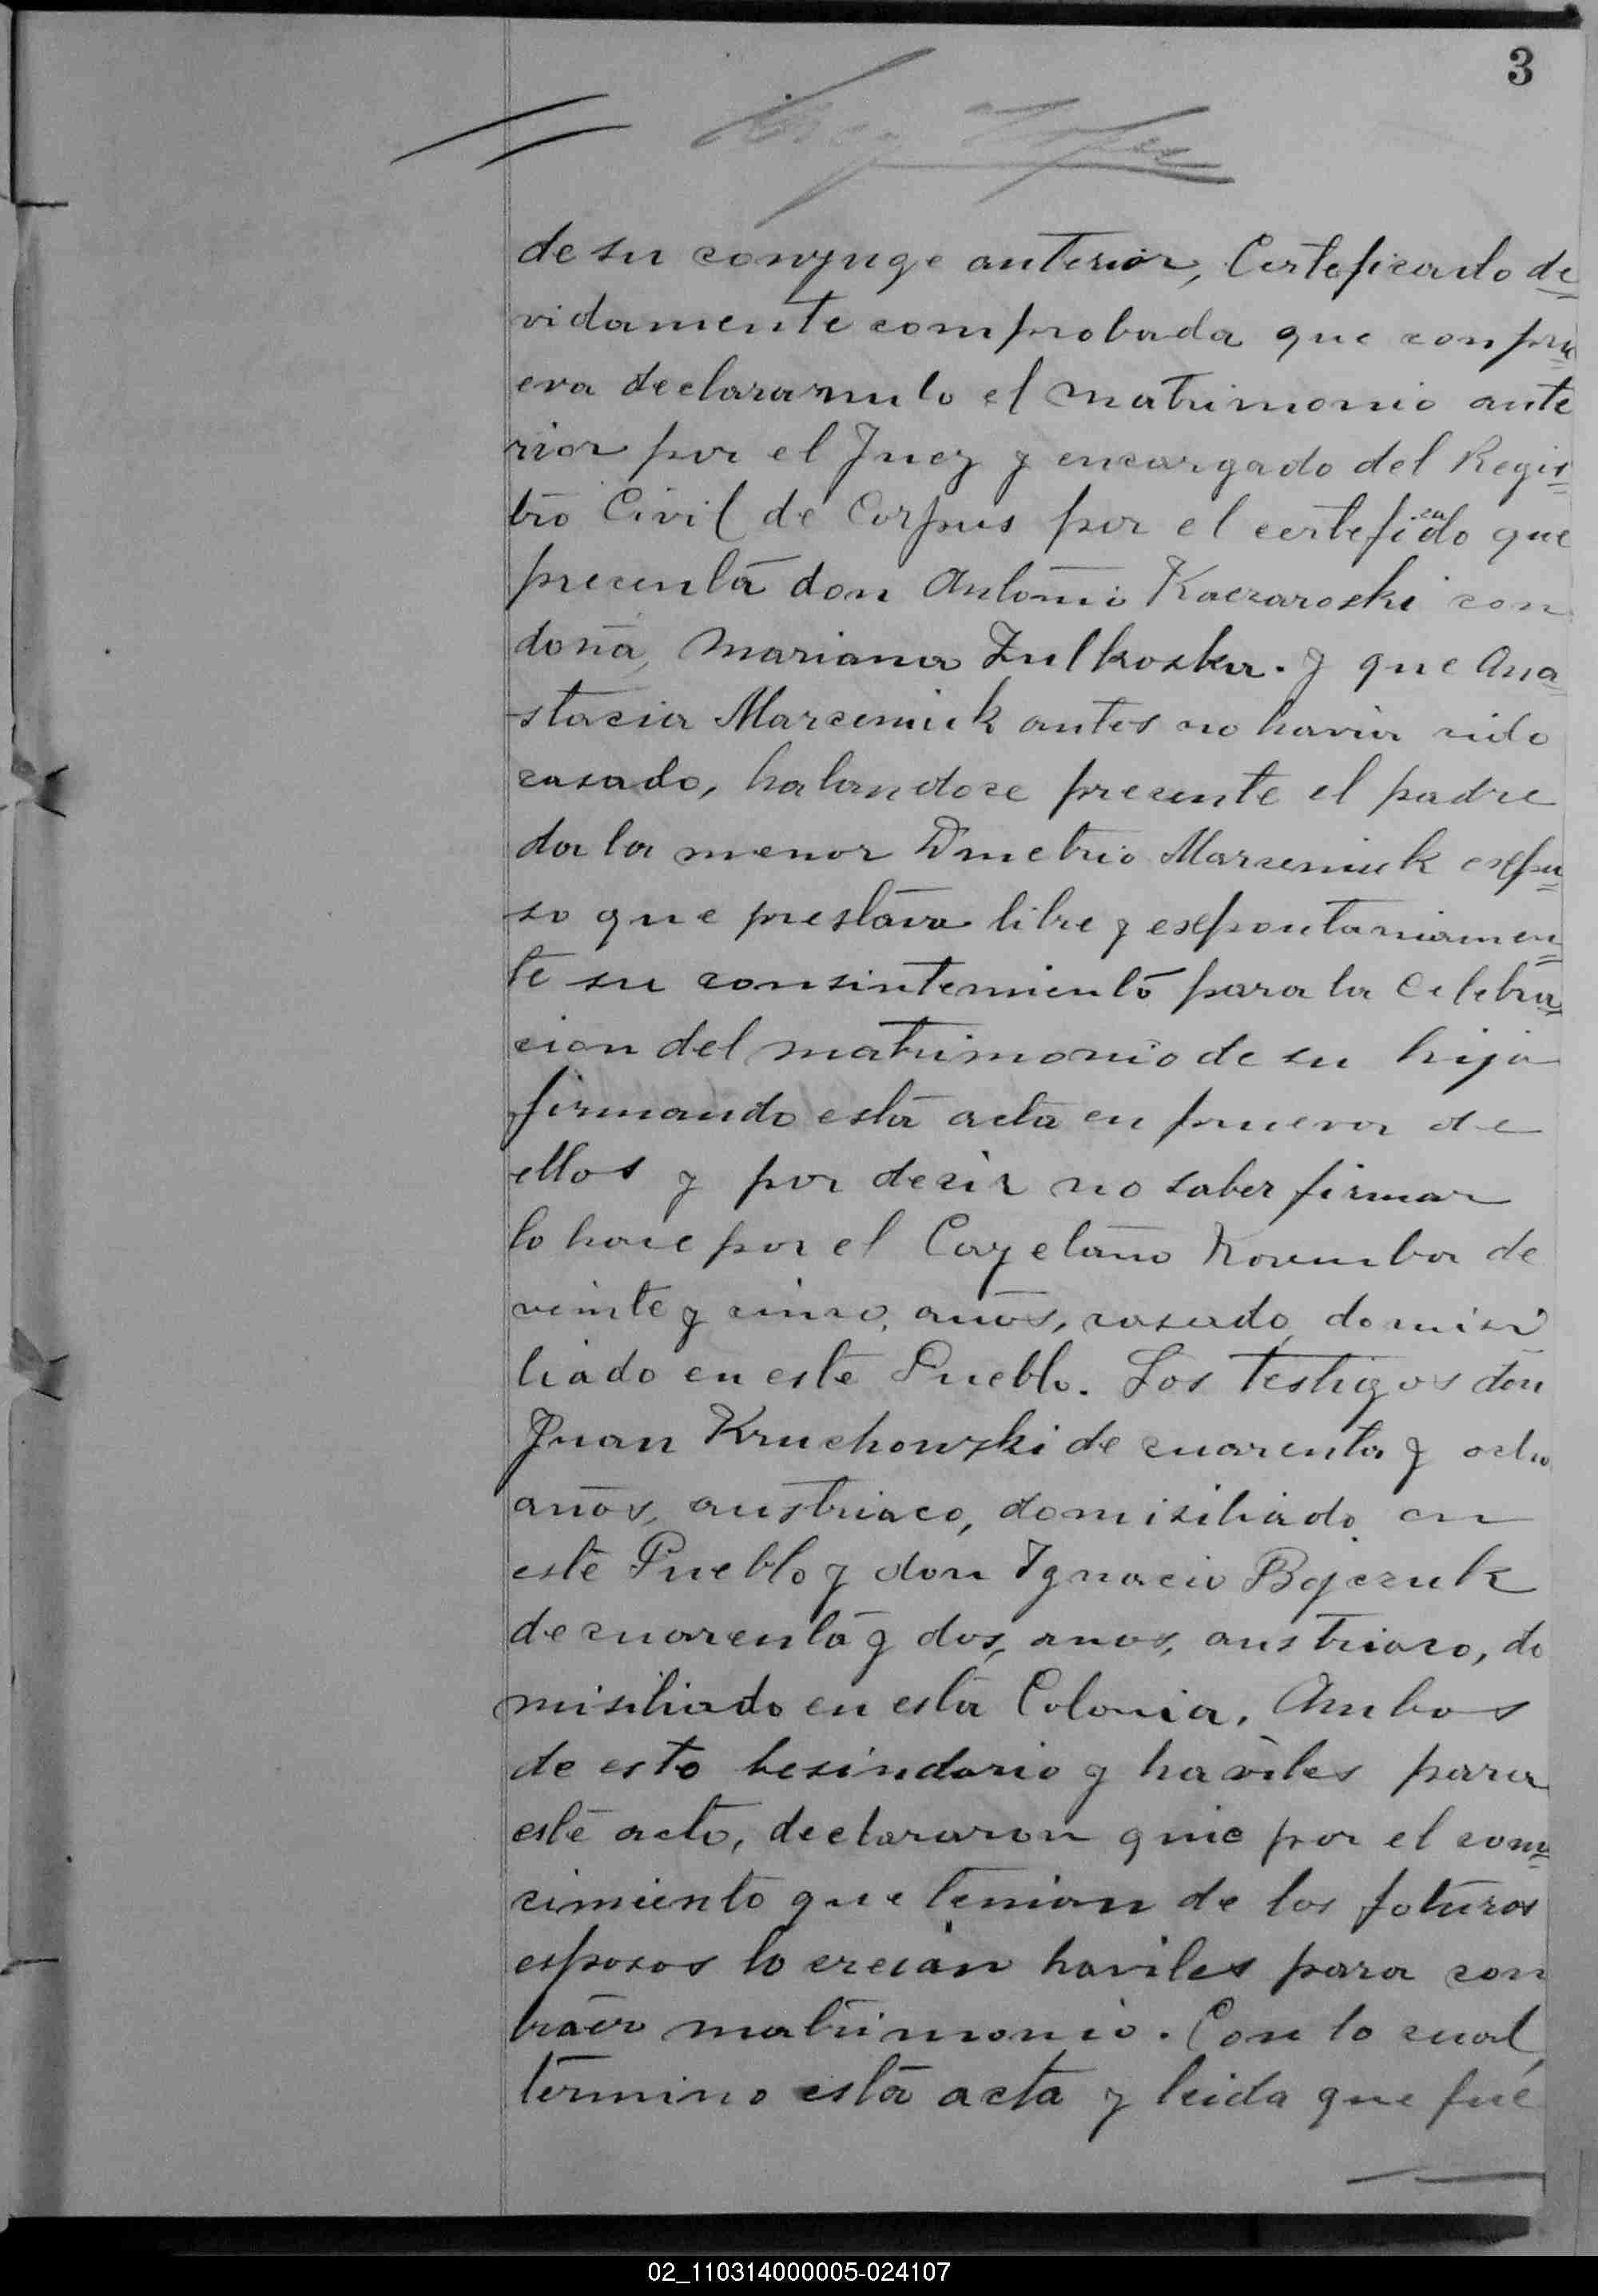 3
de su conyuge anterior, Certeficado de
vidamente comprobada que conpru
eva declararnulo el matrimonio ante
rior por el Juez y encargado del Regis
tro Civil de Corpus por el certeficado que
precenta don Antonio Kaczaroski con
dona, Mariana Zulkoska. y que Ana
stacia Marceniuk antes no havia sido
casado, halandoce precente el padre
da la menor Dmetrio Marceniuk expu
so que prestava libre y expontaniamen
te su consintemiento para la Celebra
cion del matrimonio de su hija
firmando esta acta en prueva de
ellos y por decir no saber firmar
lo hace por el Cayetano de
veinte y cinco, años, casado, domisi
liado en este Pueblo. Los testigos don
Juan Kruchowski de cuarenta y ocho
años, austriaco, domisiliado en
este Pueblo y don Ignacio Bojczuk
de cuarenta y dos, anos, austriaco, do
misiliado en esta Colonia. Ambos
de esto besindario y haviles para
este acto, declararon que por el cono
cimiento que tenian de los foturos
esposos lo creian haviles para con
traer matrimonio. Con lo cual,
termino esta acta y leida que fué
02_110314000005-024107